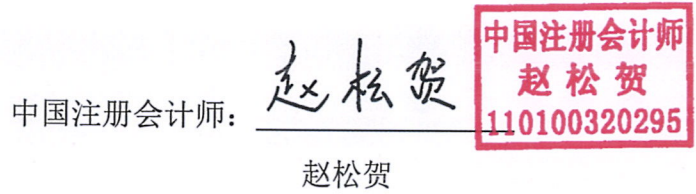 中国注册会计师：赵松贺
赵松贺
中国注册会计师
赵松贺
110100320295